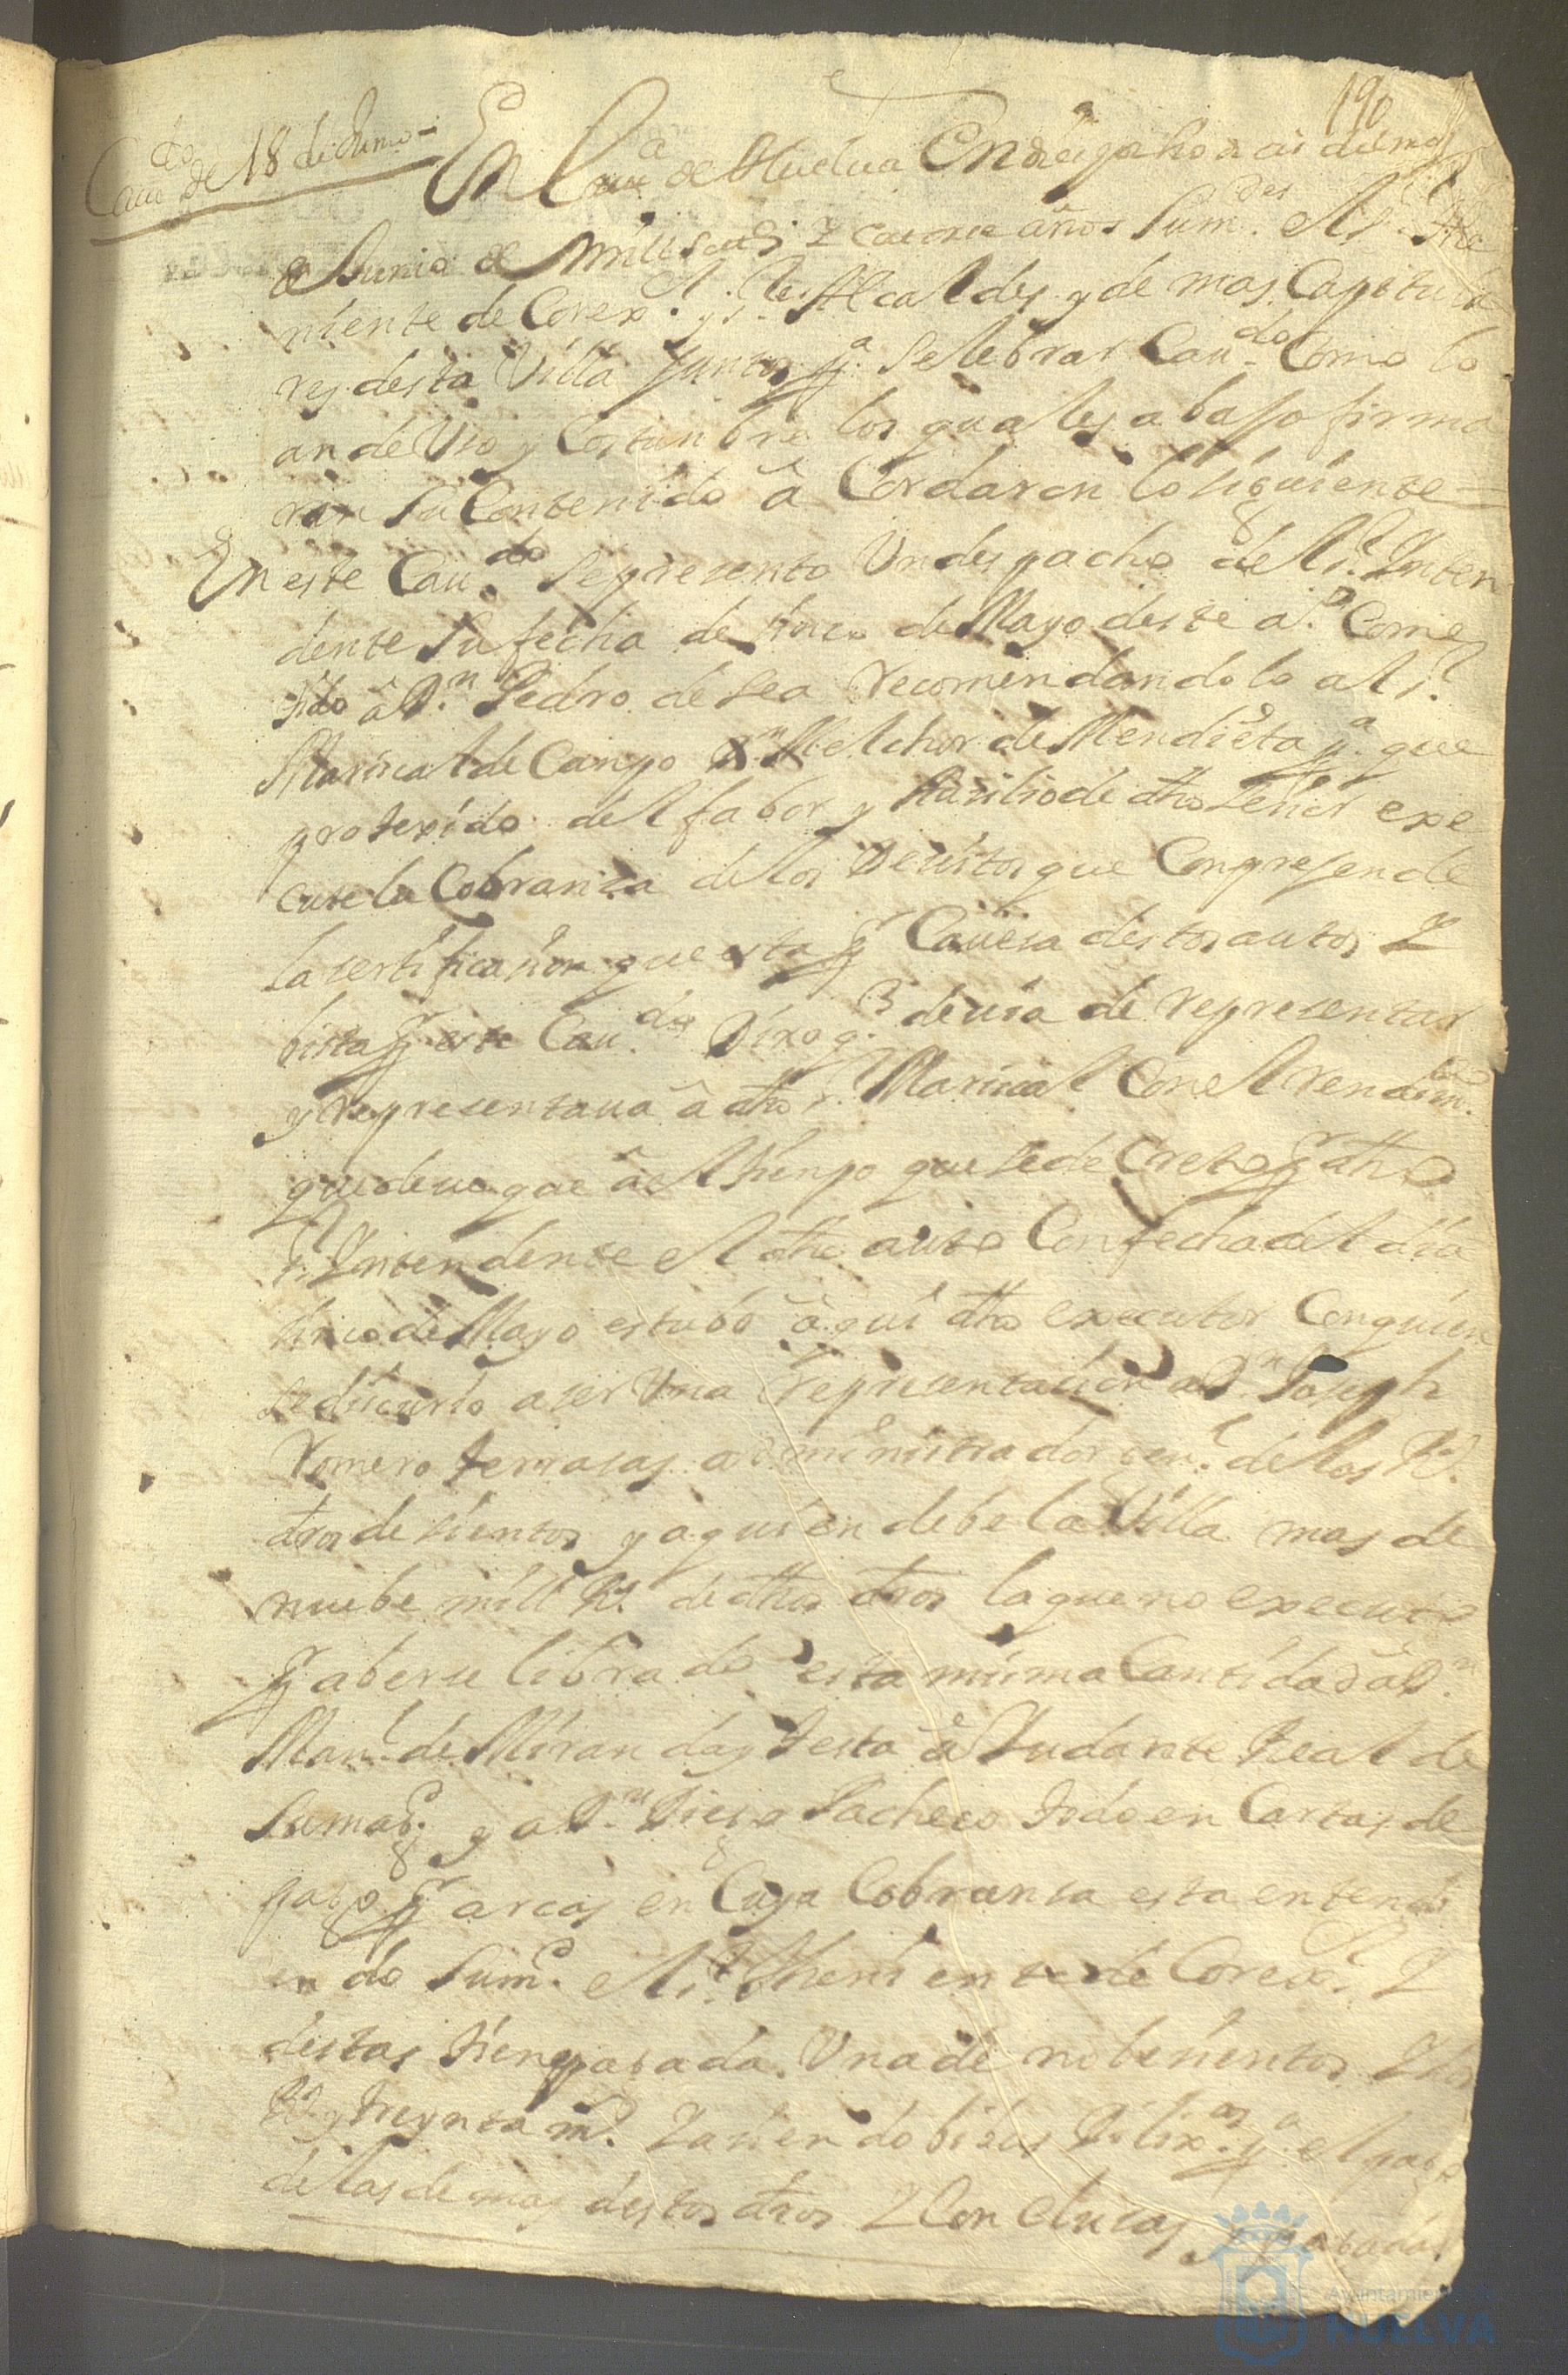 190
Cauᵈᵒ de 18 de Junio
En la Vᵃ de Huelua En dies y ocho dias del mes
de Junio de mill setᵒˢ y catorse años Sumᵈᵉˢ el sʳ The
niente de Corexᵒʳ y sʳᵉˢ Alcaldes y de mas Capitula
res desta Villa Juntos pᵃ selebrar Cauᵈᵒ Como lo
an de Uso y Costunbre los quales abajo firma
ran su Contenido â Cordaron lo siguiente =
En este Cauᵈᵒ Se presento Un despacho del sʳ Inten
dente Su fecha de sinco de Mayo deste aᵒ Come
tido â Dⁿ Pedro de sea recomendandolo al sʳ
Mariscal de Canpo Dⁿ Melchor de Mendieta pᵃ que
protexido del fabor y Auxilio de dho señor exe
cute la Cobranza de los devitos que Conprehende
la sertificasion que esta pʳ Cauesa destos autos Y
bista pʳ este Cauᵈᵒ Dixo qᵉ deuia de representar
y representaua â dho sʳ Mariscal Con el rendimᵗᵒ
que deue que âel tienpo que se decreto pʳ dho
sʳ Intendente el dho auto Con fecha del dia
sinco de Mayo estubo âqui dho executor Con quien
se discurrio aser Una representasion a Dⁿ Joseph
Romero terrasas administrador genˡ de los Rˢ
dros de sientos y a quien debe la Villa mas de
nuebe mill Rˢ de dhos dros la que no executo
pʳ aberse librado esta misma Cantidad â Dⁿ
Manˡ de Miranda y testa âiudante Real de
Su magᵈ y a Dⁿ Diego Pacheco todo en Cartas de
pago pʳ arcas en Cuya Cobransa esta entendi
en do Sumᵈ el sʳ theniente de Corexᵒʳ Y
destas tiene pagada Una de nobesientos Y dos
Rˢ y treynta mˢ Y asiendo bibas Dilixᵃˢ pᵃ el pago
de las de mas destos dros Y Con clusas y pagadas
Ayuntamiento de
HUELVA